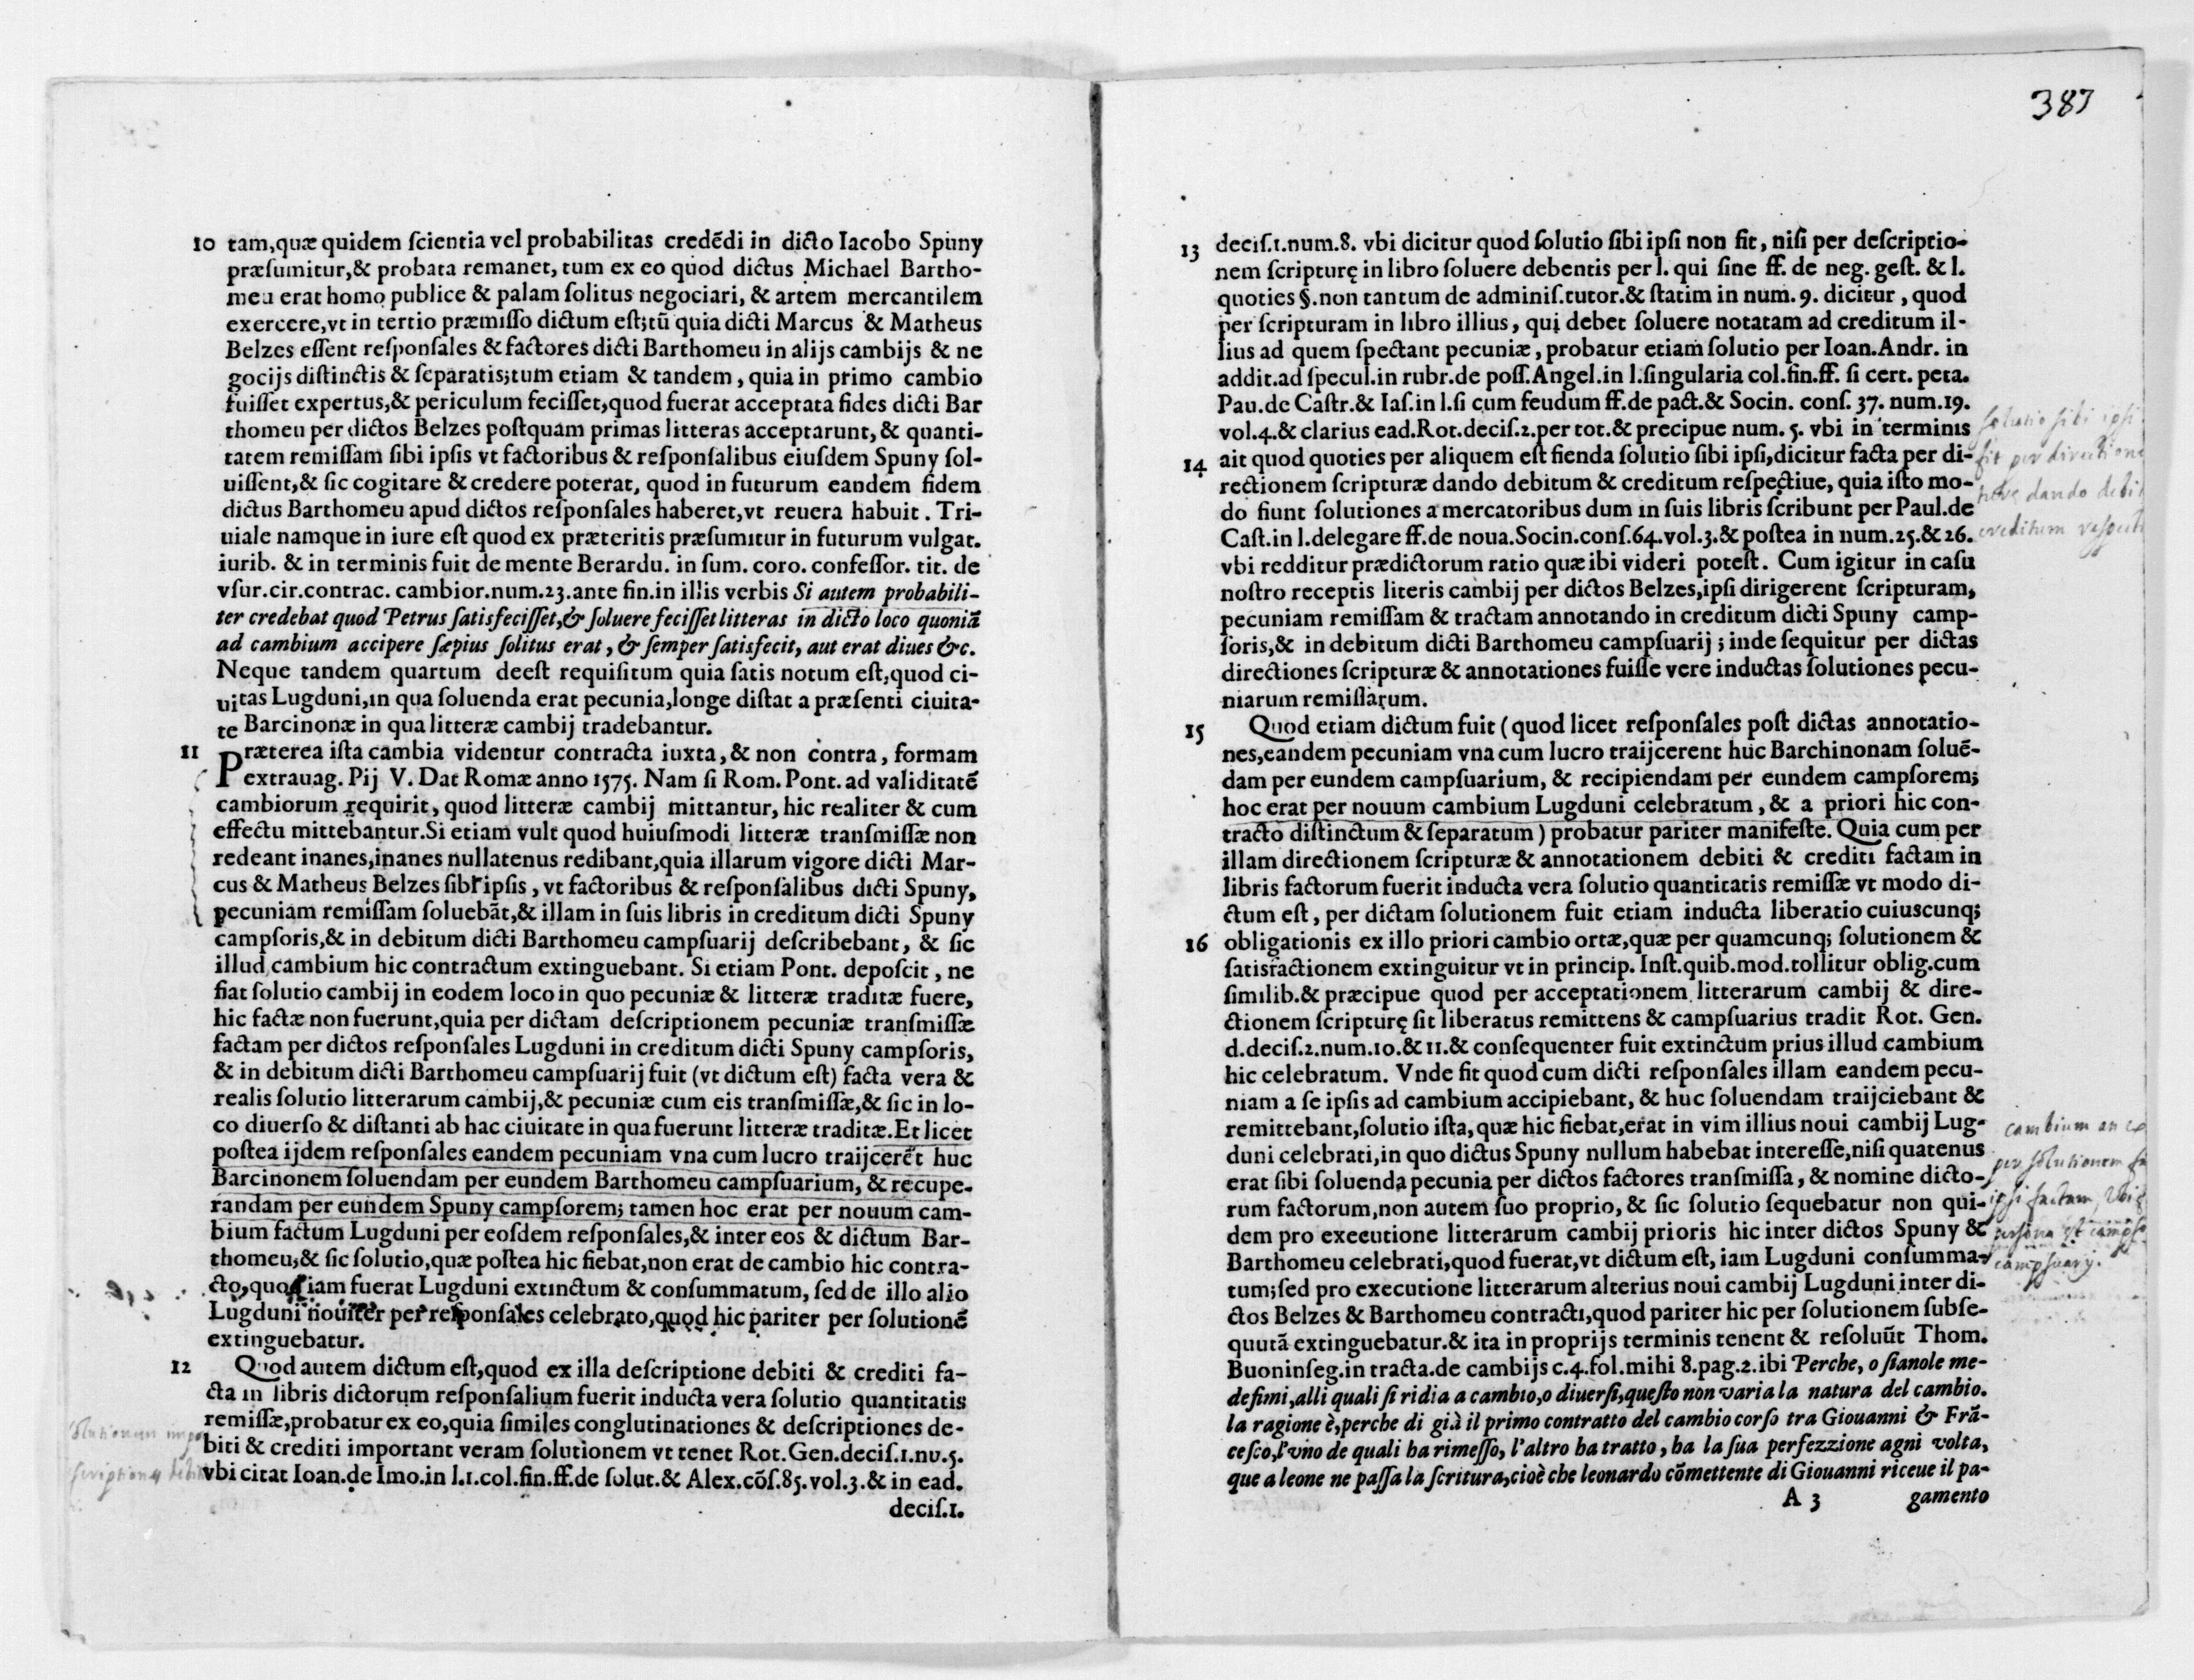 10 tam,quæ quidem ſcientia vel probabilitas credẽdi in dicto Iacobo Spuny
præſumitur,& probata remanet, tum ex eo quod dictus Michael Bartho-
meu erat homo publice & palam ſolitus negociari, & artem mercantilem
exercere,vt in tertio præmiſſo dictum eſt;tũ quia dicti Marcus & Matheus
Belzes eſſent reſponſales & factores dicti Barthomeu in alijs cambijs & ne
gocijs diſtinctis & ſeparatis;tum etiam & tandem, quia in primo cambio
fuiſſet expertus,& periculum feciſſet,quod fuerat acceptata fides dicti Bar
thomeu per dictos Belzes poſtquam primas litteras acceptarunt, & quanti-
tatem remiſſam ſibi ipſis vt factoribus & reſponſalibus eiuſdem Spuny ſol-
uiſſent,& ſic cogitare & credere poterat, quod in futurum eandem fidem
dictus Barthomeu apud dictos reſponſales haberet,vt reuera habuit. Tri-
uiale namque in iure eſt quod ex præteritis præſumitur in futurum vulgat.
iurib. & in terminis fuit de mente Berardu. in ſum. coro. confeſſor. tit. de
vſur.cir.contrac. cambior.num.23.ante fin.in illis verbis Si autem probabili-
ter credebat quod Petrus ſatisfeciſſet,& ſoluere feciſſet litteras in dicto loco quoniã
ad cambium accipere ſæpius ſolitus erat, & ſemper ſatisfecit, aut erat diues &c.
Neque tandem quartum deeſt requiſitum quia ſatis notum eſt,quod ci-
uitas Lugduni,in qua ſoluenda erat pecunia,longe diſtat a præſenti ciuita-
te Barcinonæ in qua litteræ cambij tradebantur.
11 Præterea iſta cambia videntur contracta iuxta, & non contra, formam
extrauag. Pij V. Dat Romæ anno 1575. Nam ſi Rom. Pont. ad validitatẽ
cambiorum requirit, quod litteræ cambij mittantur, hic realiter & cum
effectu mittebantur.Si etiam vult quod huiuſmodi litteræ tranſmiſſæ non
redeant inanes,inanes nullatenus redibant,quia illarum vigore dicti Mar-
cus & Matheus Belzes ſibi ipſis, vt factoribus & reſponſalibus dicti Spuny,
pecuniam remiſſam ſoluebãt,& illam in ſuis libris in creditum dicti Spuny
campſoris,& in debitum dicti Barthomeu campſuarij deſcribebant, & ſic
illud cambium hic contractum extinguebant. Si etiam Pont. depoſcit, ne
fiat ſolutio cambij in eodem loco in quo pecuniæ & litteræ traditæ fuere,
hic factæ non fuerunt,quia per dictam deſcriptionem pecuniæ tranſmiſſæ
factam per dictos reſponſales Lugduni in creditum dicti Spuny campſoris,
& in debitum dicti Barthomeu campſuarij fuit (vt dictum eſt) facta vera &
realis ſolutio litterarum cambij,& pecuniæ cum eis tranſmiſſæ,& ſic in lo-
co diuerſo & diſtanti ab hac ciuitate in qua fuerunt litteræ traditæ.Et licet
poſtea ijdem reſponſales eandem pecuniam vna cum lucro traijcerẽt huc
Barcinonem ſoluendam per eundem Barthomeu campſuarium, & recupe-
randam per eundem Spuny campſorem; tamen hoc erat per nouum cam-
bium factum Lugduni per eoſdem reſponſales,& inter eos & dictum Bar-
thomeu,& ſic ſolutio,quæ poſtea hic fiebat,non erat de cambio hic contra-
cto,quod iam fuerat Lugduni extinctum & conſummatum, ſed de illo alio
Lugduni nouiter per reſponſales celebrato,quod hic pariter per ſolutionẽ
extinguebatur.
12 Quod autem dictum eſt,quod ex illa deſcriptione debiti & crediti fa-
cta in libris dictorum reſponſalium fuerit inducta vera ſolutio quantitatis
remiſſæ,probatur ex eo,quia ſimiles conglutinationes & deſcriptiones de-
biti & crediti important veram ſolutionem vt tenet Rot.Gen.deciſ.1.nu.5.
vbi citat Ioan.de Imo.in l.1.col.fin.ff.de ſolut.& Alex.cõſ.85.vol.3.& in ead.
deciſ.1.
387
13 deciſ.1.num.8. vbi dicitur quod ſolutio ſibi ipſi non fit, niſi per deſcriptio-
nem ſcripturę in libro ſoluere debentis per l. qui ſine ff. de neg. geſt. & l.
quoties §.non tantum de adminiſ.tutor.& ſtatim in num. 9. dicitur, quod
per ſcripturam in libro illius, qui debet ſoluere notatam ad creditum il-
lius ad quem ſpectant pecuniæ, probatur etiam ſolutio per Ioan.Andr. in
addit.ad ſpecul.in rubr.de poſſ.Angel.in l.ſingularia col.fin.ff. ſi cert. peta.
Pau.de Caſtr.& Iaſ.in l.ſi cum feudum ff.de pact.& Socin. conſ. 37. num.19.
vol.4.& clarius ead.Rot.deciſ.2.per tot.& precipue num. 5. vbi in terminis
14 ait quod quoties per aliquem eſt fienda ſolutio ſibi ipſi,dicitur facta per di-
rectionem ſcripturæ dando debitum & creditum reſpectiue, quia iſto mo-
do fiunt ſolutiones a mercatoribus dum in ſuis libris ſcribunt per Paul.de
Caſt.in l.delegare ff.de noua.Socin.conſ.64.vol.3.& poſtea in num.25.& 26.
vbi redditur prædictorum ratio quæ ibi videri poteſt. Cum igitur in caſu
noſtro receptis literis cambij per dictos Belzes,ipſi dirigerent ſcripturam,
pecuniam remiſſam & tractam annotando in creditum dicti Spuny camp-
ſoris,& in debitum dicti Barthomeu campſuarij; inde ſequitur per dictas
directiones ſcripturæ & annotationes fuiſſe vere inductas ſolutiones pecu-
niarum remiſſarum.
solutio sibi ipsi
fit per directione
dando debi
creditum respecti
15 Quod etiam dictum fuit (quod licet reſponſales poſt dictas annotatio-
nes,eandem pecuniam vna cum lucro traijcerent huc Barchinonam ſoluẽ-
dam per eundem campſuarium, & recipiendam per eundem campſorem;
hoc erat per nouum cambium Lugduni celebratum, & a priori hic con-
tracto diſtinctum & ſeparatum) probatur pariter manifeſte. Quia cum per
illam directionem ſcripturæ & annotationem debiti & crediti factam in
libris factorum fuerit inducta vera ſolutio quantitatis remiſſæ vt modo di-
ctum eſt, per dictam ſolutionem fuit etiam inducta liberatio cuiuscunq;
16 obligationis ex illo priori cambio ortæ,quæ per quamcunq; ſolutionem &
ſatisfactionem extinguitur vt in princip. Inſt.quib.mod.tollitur oblig.cum
ſimilib.& præcipue quod per acceptationem litterarum cambij & dire-
ctionem ſcripturę ſit liberatus remittens & campſuarius tradit Rot. Gen.
d.deciſ.2.num.10.& 11.& conſequenter fuit extinctum prius illud cambium
hic celebratum. Vnde fit quod cum dicti reſponſales illam eandem pecu-
niam a ſe ipſis ad cambium accipiebant, & huc ſoluendam traijciebant &
remittebant,ſolutio iſta,quæ hic fiebat,erat in vim illius noui cambij Lug-
duni celebrati,in quo dictus Spuny nullum habebat intereſſe,niſi quatenus
erat ſibi ſoluenda pecunia per dictos factores tranſmiſſa, & nomine dicto-
rum factorum,non autem ſuo proprio, & ſic ſolutio ſequebatur non qui-
dem pro executione litterarum cambij prioris hic inter dictos Spuny &
Barthomeu celebrati,quod fuerat,vt dictum eſt, iam Lugduni conſumma-
tum;ſed pro executione litterarum alterius noui cambij Lugduni inter di-
ctos Belzes & Barthomeu contracti,quod pariter hic per ſolutionem ſubſe-
quutã extinguebatur.& ita in proprijs terminis tenent & reſoluũt Thom.
Buoninſeg.in tracta.de cambijs c.4.fol.mihi 8.pag.2.ibi Perche, o ſianole me-
deſimi,alli quali ſi ridia a cambio,o diuerſi,queſto non varia la natura del cambio.
la ragione è,perche di già il primo contratto del cambio corſo tra Giouanni & Frã-
ceſco,l'vno de quali ha rimeſſo, l'altro ha tratto, ha la ſua perfezzione agni volta,
que a leone ne paſſa la ſcritura,cioè che leonardo cõmettente di Giouanni riceue il pa-
cambium an
per solutionem
ipsi factam
persona
campsuarij.
A 3 gamento